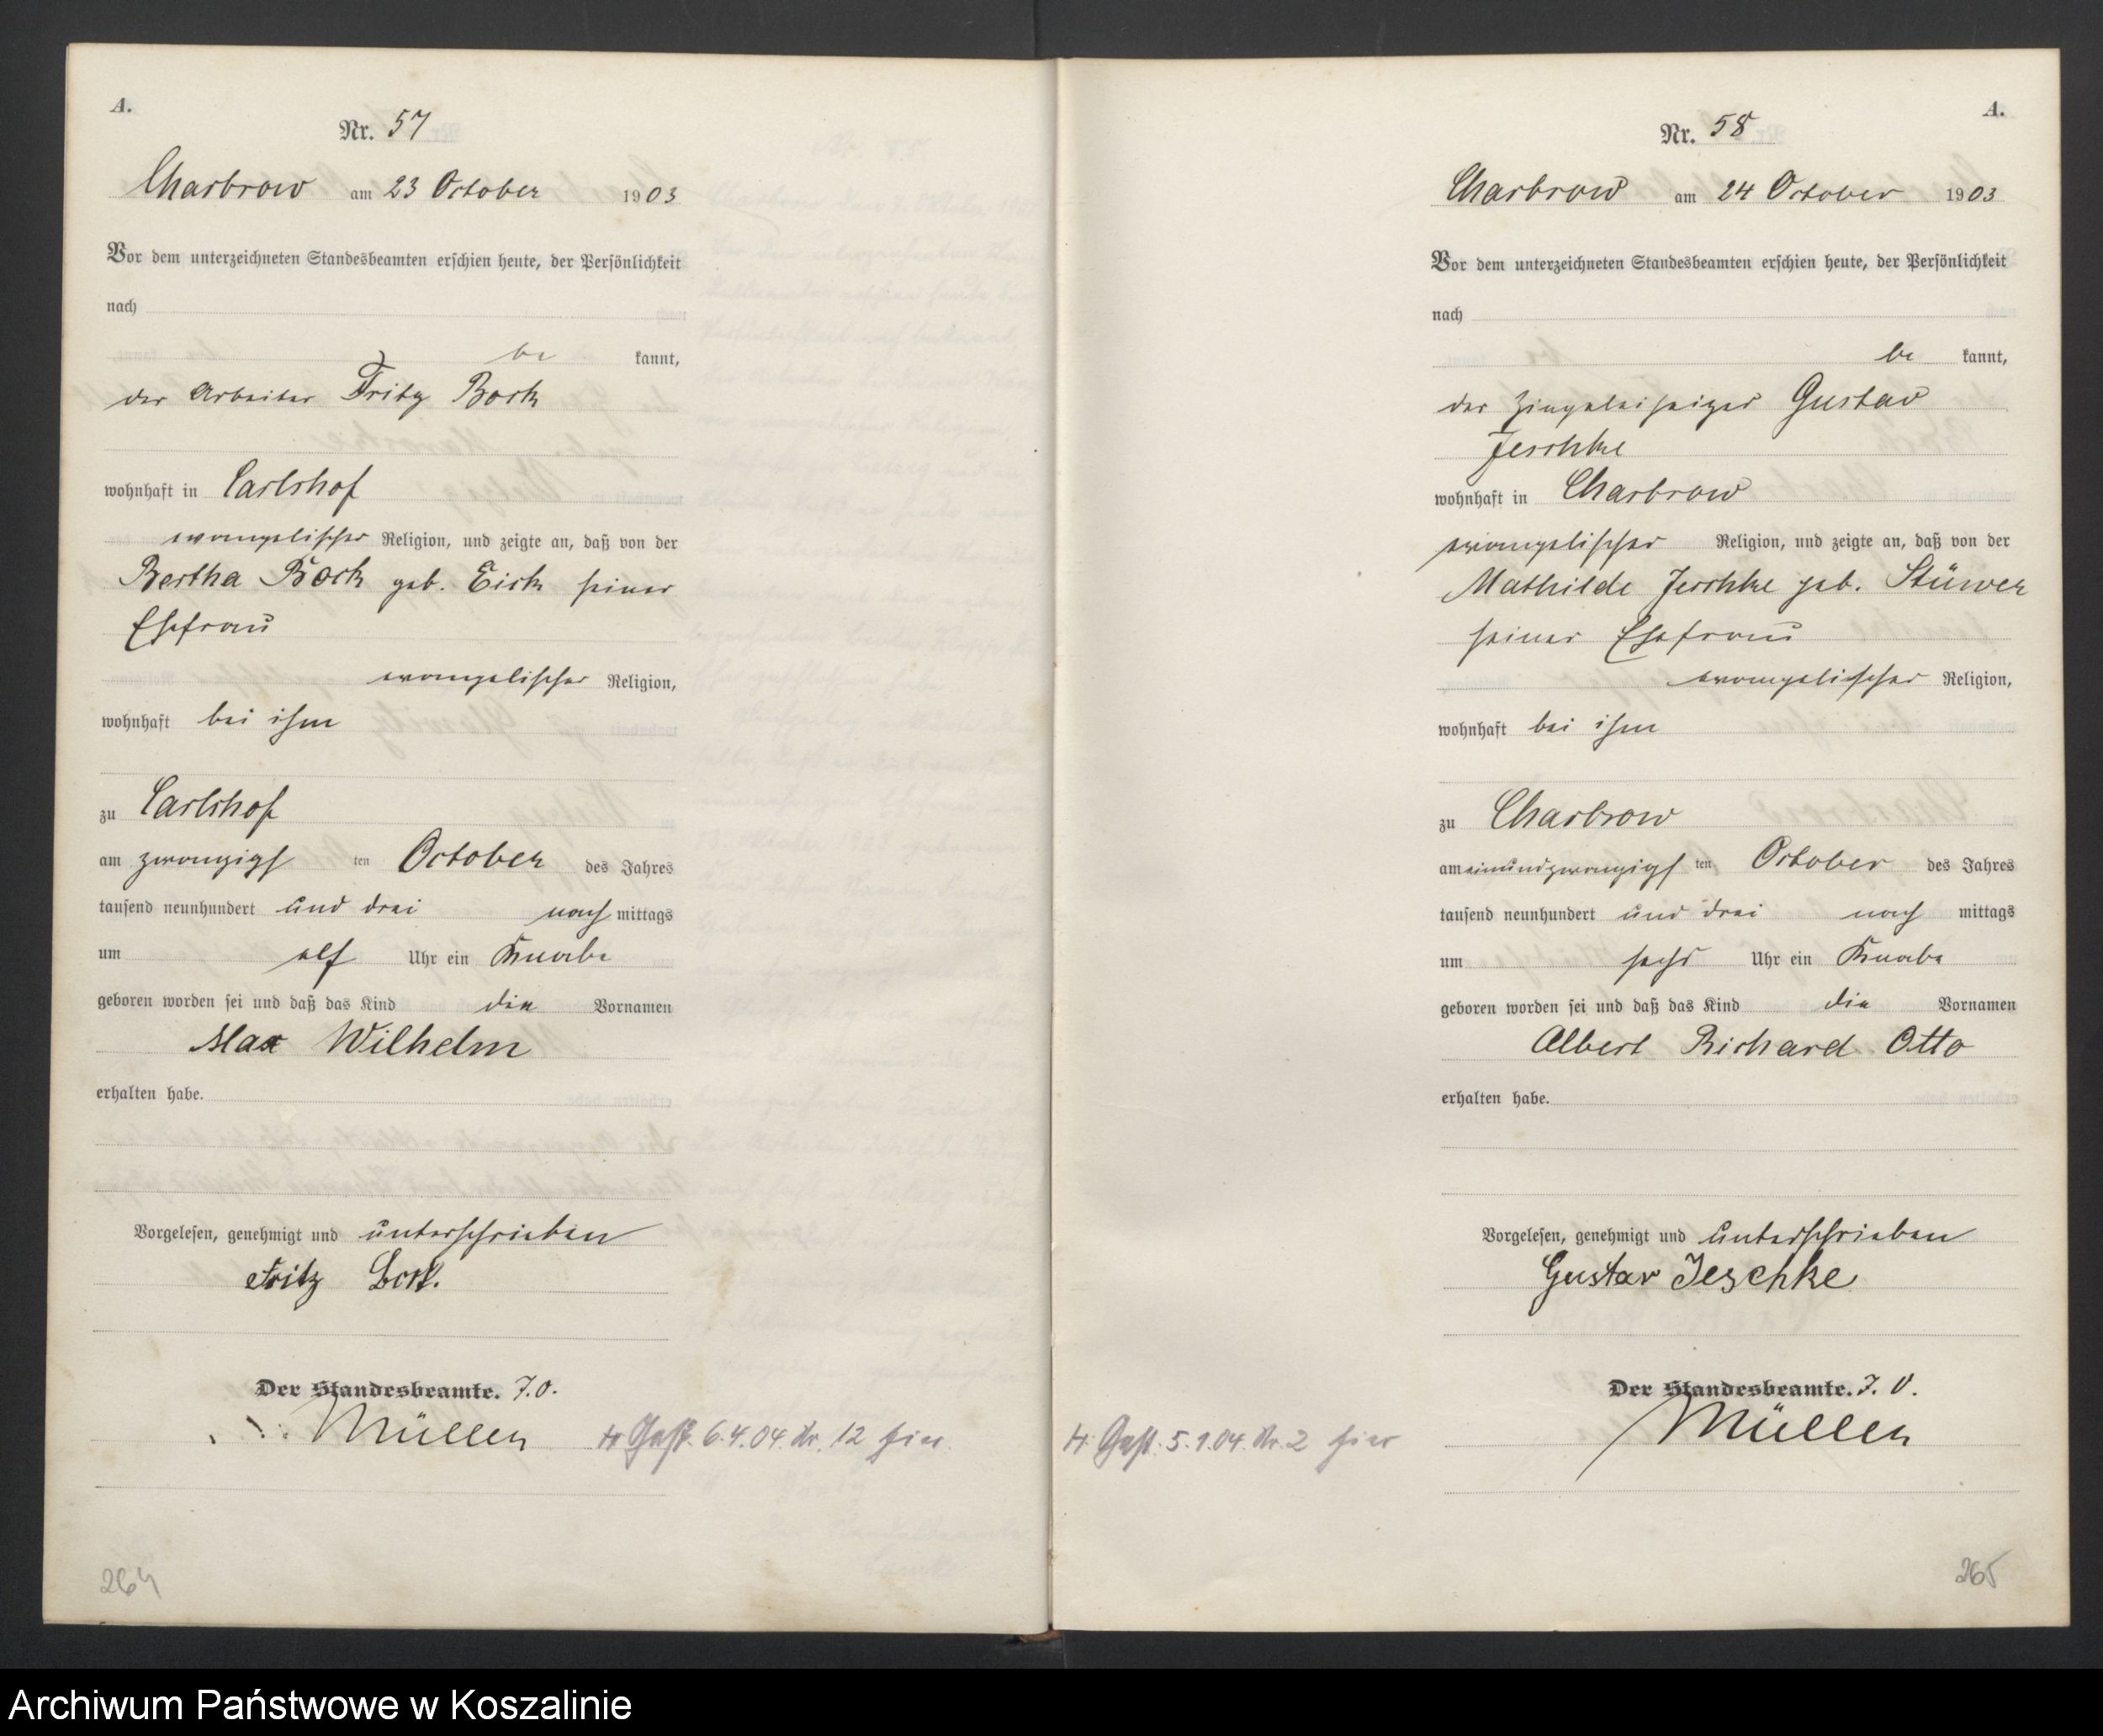 A.
Nr. 57
Charbrow am 23 October 1903
Vor dem unterzeichneten Standesbeamten erschien heute, der Persönlichkeit
nach
be kannt,
der Arbeiter Fritz Bock
wohnhaft in Carlshof
evangelischer Religion, und zeigte an, daß von der
Bertha Bock geb. Eick seiner
Ehefrau
evangelischer Religion,
wohnhaft bei ihm
zu Carlshof
am zwanzigs ten October des Jahres
tausend neunhundert und drei nach mittags
um elf Uhr ein Knabe
geboren worden sei und daß das Kind die Vornamen
Max Wilhelm
erhalten habe.
Vorgelesen, genehmigt und unterschrieben
Fritz Bock.
Der Standesbeamte. J.V.
Müller
6.4.04. Nr. 12 hier.
264
A.
Nr. 58
Charbrow am 24 October 1903
Vor dem unterzeichneten Standesbeamten erschien heute, der Persönlichkeit
nach
be kannt,
der Gustav
Jeschke
wohnhaft in Charbrow
evangelischer Religion, und zeigte an, daß von der
Mathilde Jeschke geb. Stüwer
seiner Ehefrau
evangelischer Religion,
wohnhaft bei ihm
zu Charbrow
am einundzwanzigs ten October des Jahres
tausend neunhundert und drei nach mittags
um sechs Uhr ein Knabe
geboren worden sei und daß das Kind die Vornamen
Albert Richard Otto
erhalten habe.
Vorgelesen, genehmigt und unterschrieben
Gustav Jeschke
Der Standesbeamte. J. V.
Müller
5.1.04. Nr. 2 hier
265
Archiwum Państwowe w Koszalinie